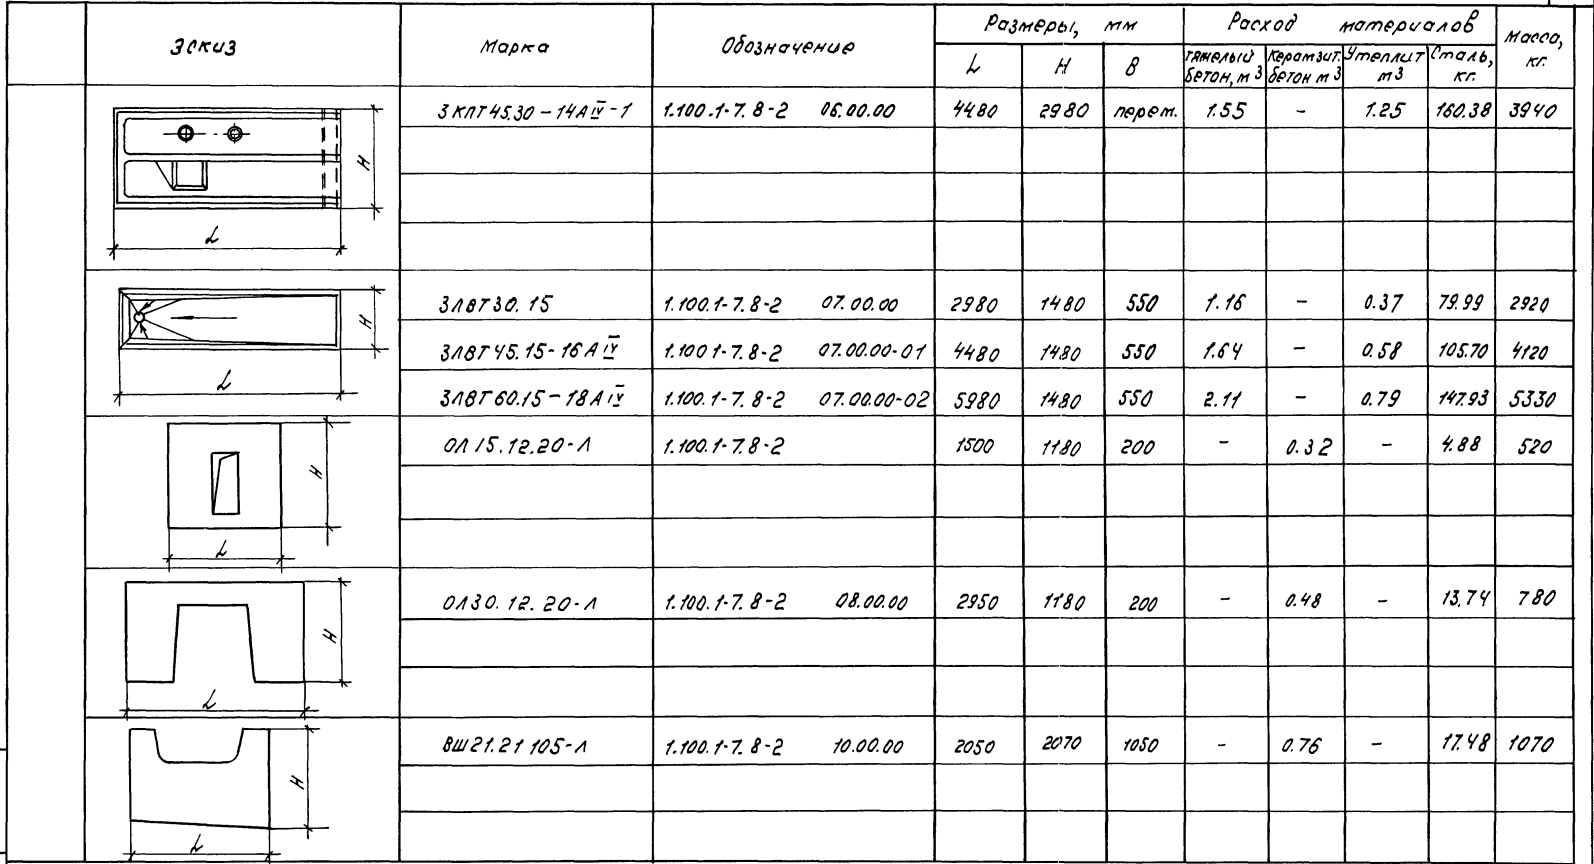 Эскиз Марка Обозначение Размеры, мм Расход материалов Масса, кг.
L H B тяжелый бетон, м3 керамзит. бетон м3 Утеплит м3 Сталь, кг.
3КПТ45.30-14АIV-1 1.100.1-7.8-2 06.00.00 4480 2980 перем. 1.55 - 1.25 160.38 3940
H
L
3ЛВТ30.15 1.100.1-7.8-2 07.00.00 2980 1480 550 1.16 - 0.37 79.99 2920
H
3ЛВТ45.15-16АIV 1.1001-7.8-2 07.00.00-01 4480 1480 550 1.64 - 0.58 105.70 4120
L
3ЛВТ60.15-18АIV 1.100.1-7.8-2 07.00.00-02 5980 1480 550 2.11 - 0.79 147.93 5330
ОЛ15.12.20-Л 1.100.1-7.8-2 1500 1180 200 - 0.32 - 4.88 520
H
L
ОЛ30.12.20-Л 1.100.1-7.8-2 08.00.00 2950 1180 200 - 0.48 - 13.74 780
H
L
ВШ21.21 105-Л 1.100.1-7.8-2 10.00.00 2050 2070 1050 - 0.76 - 17.48 1070
H
L